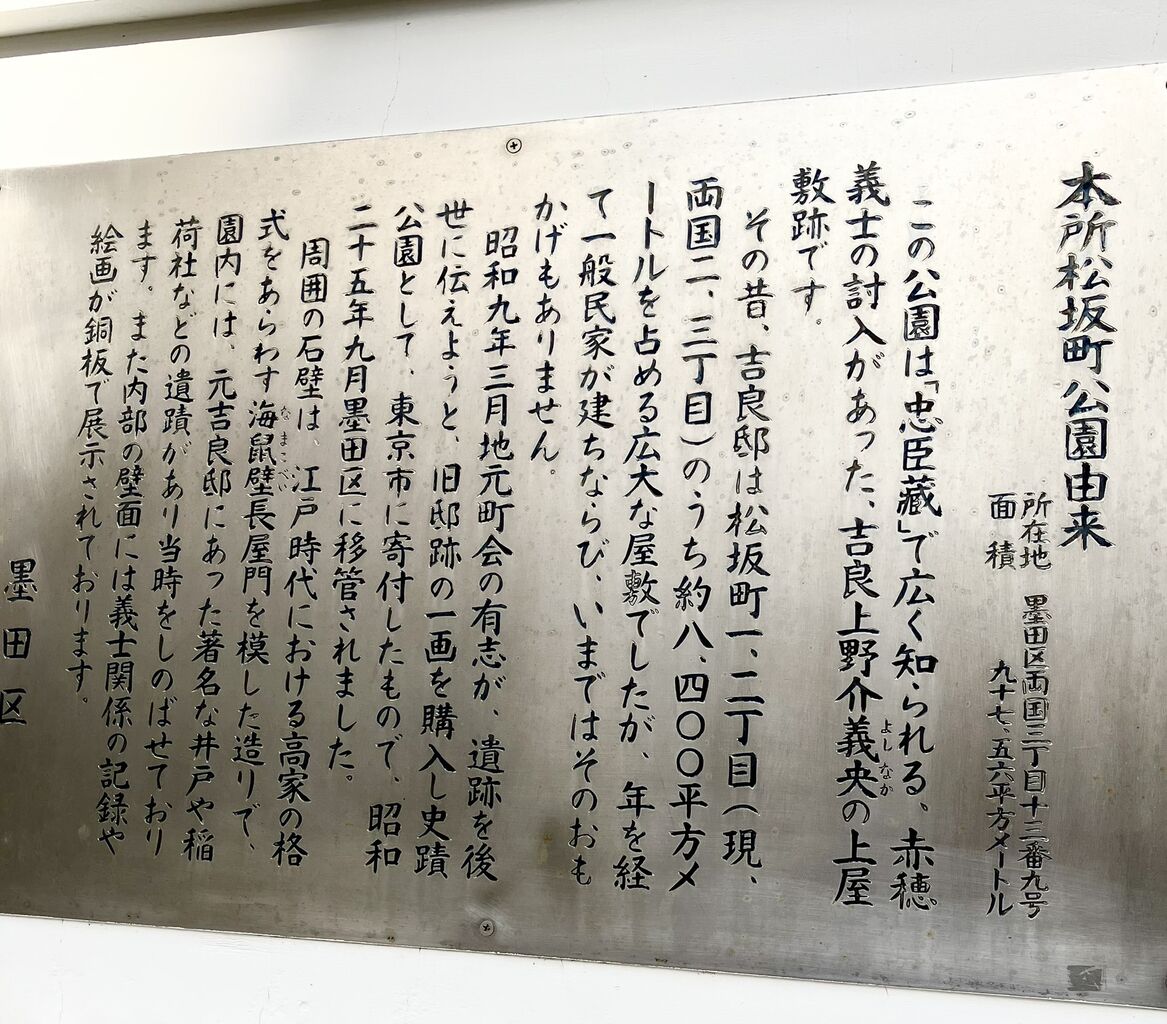 本所松坂町公園由来
所在地　墨田区両国三丁目十三番九号
面　積　九十七、五六平方メートル
この公園は「忠臣蔵」で広く知られる、赤穂
義士の討入があった、吉良上野介義央の上屋
よしなか
敷跡です。
その昔、吉良邸は松坂町一、二丁目(現、
両国二、三丁目)のうち約八、四〇〇平方メ
ートルを占める広大な屋敷でしたが、年を経
て一般民家が建ちならび、いまではそのおも
かげもありません。
昭和九年三月地元町会の有志が、遺跡を後
世に伝えようと、旧邸跡の一画を購入し史蹟
公園として、東京市に寄付したもので、昭和
二十五年九月墨田区に移管されました。
周囲の石壁は、江戸時代における高家の格
式をあらわす海鼠壁長屋門を模した造りで、
なまこべい
園内には、元吉良邸にあった著名な井戸や稲
荷社などの遺蹟があり当時をしのばせており
ます。また内部の壁面には義士関係の記録や
絵画が銅板で展示されております。
墨田区